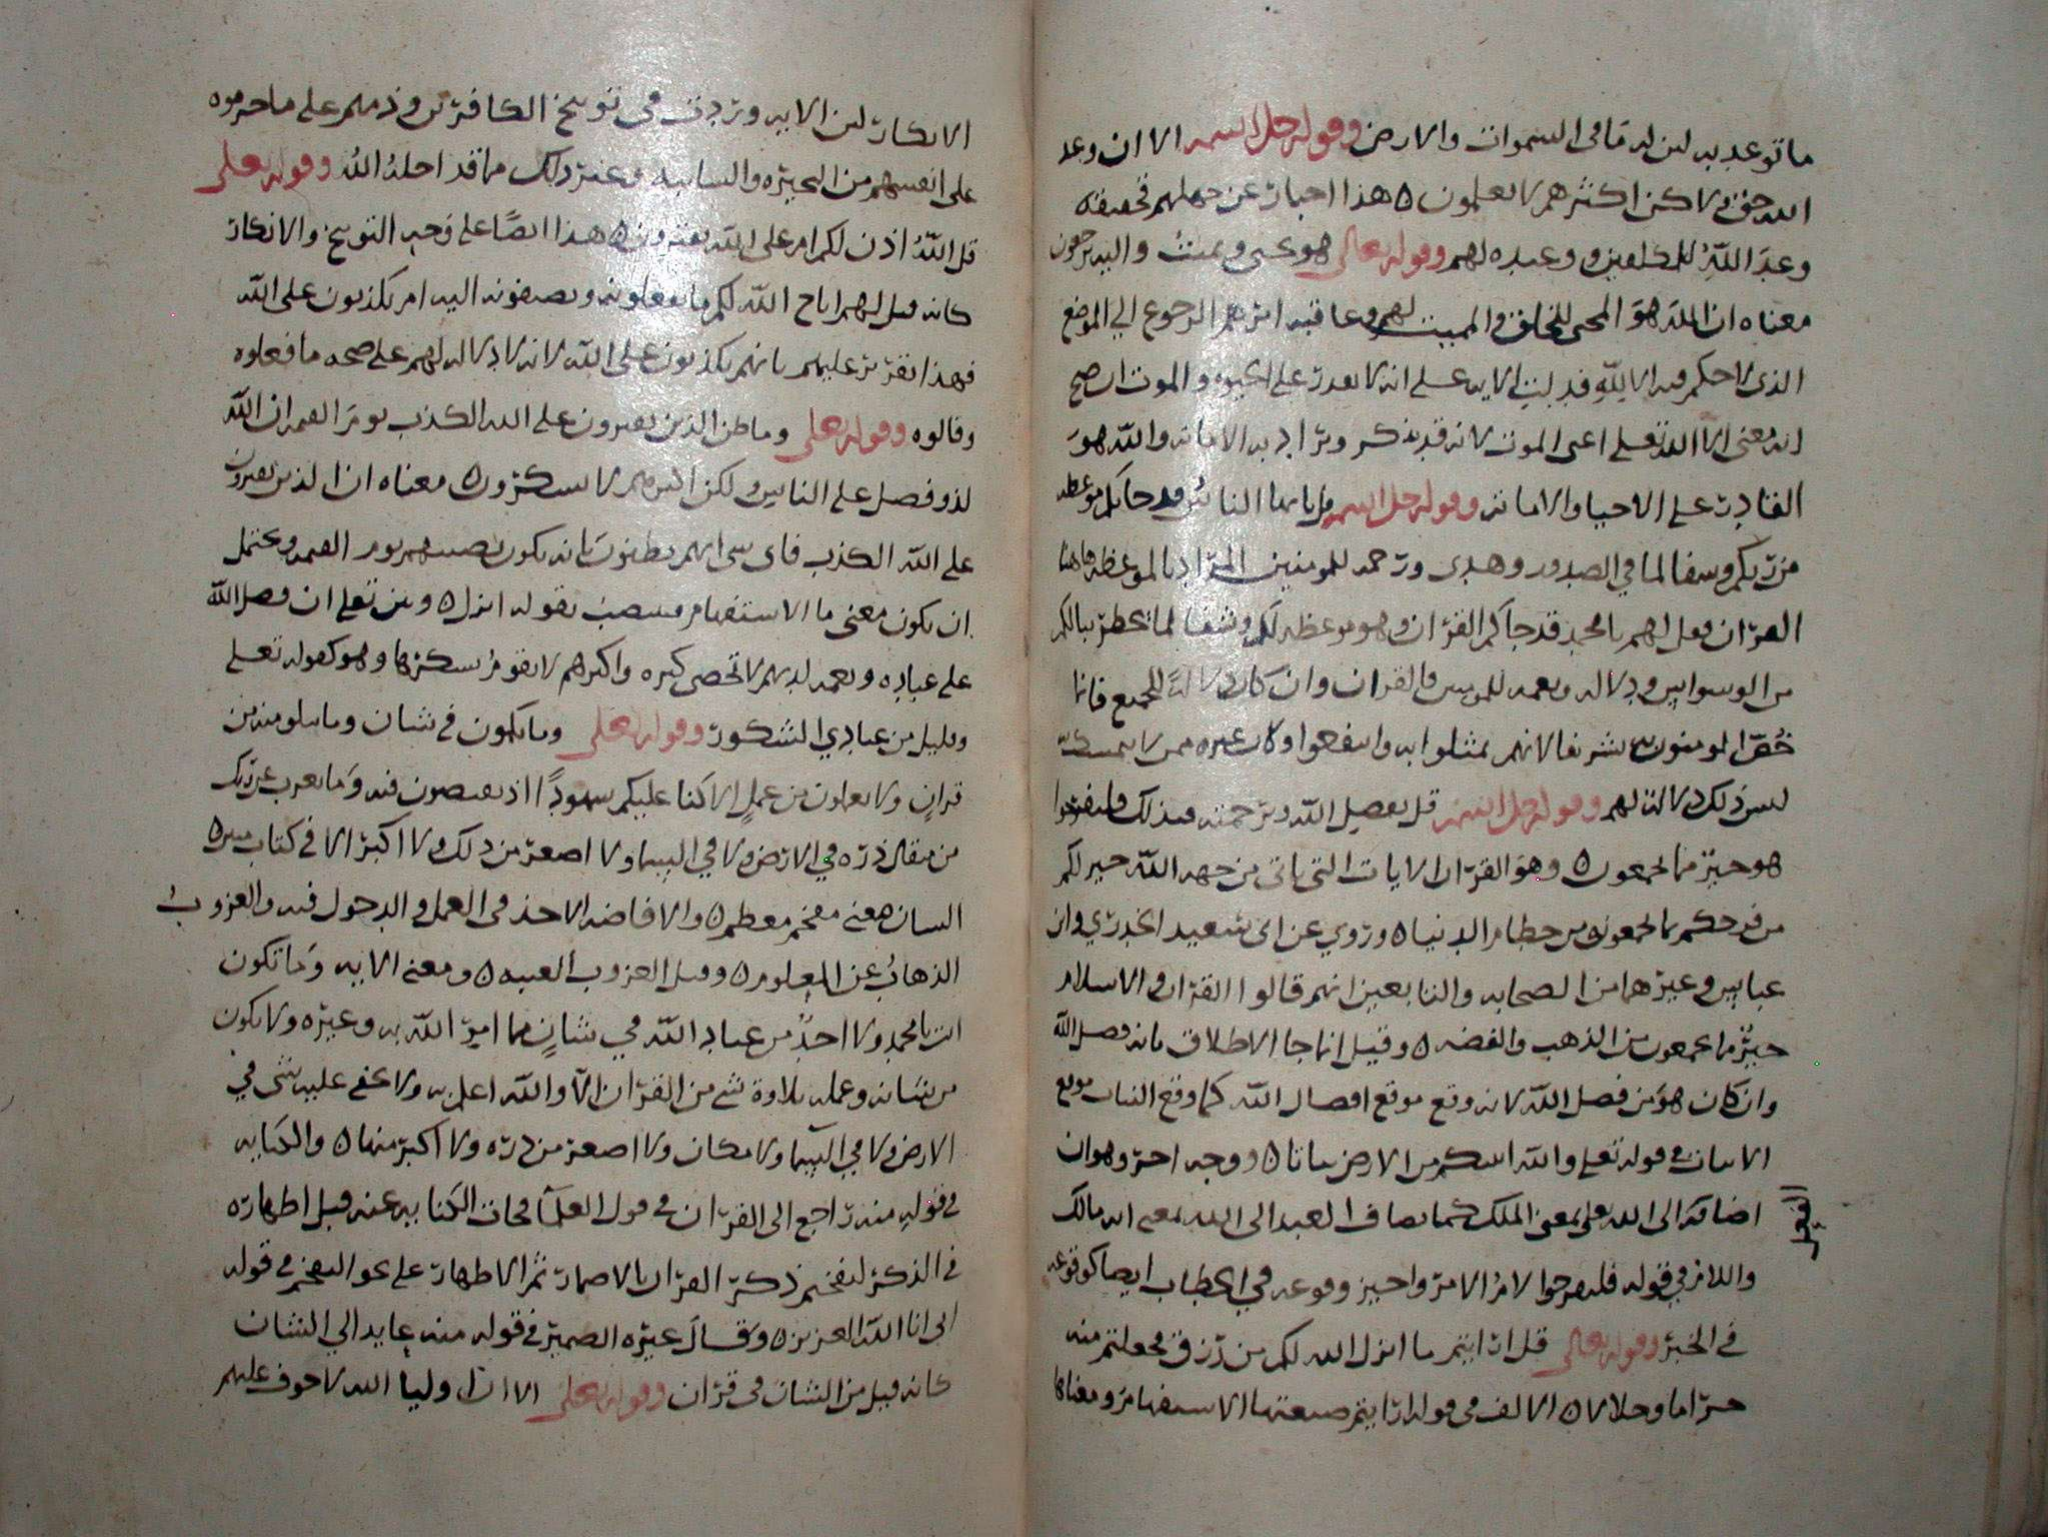 ما توعد به لان له ما في السموات والارض وقوله جل اسمه الا ان وعد
الله حق ولاكن اكثرهم لا يعلمون ه هذا اخبار عن جهلهم تحقيقه
وعد الله للمكلفين ووعيده لهم وقوله تعالى هو يحيى ويميت واليه ترجعون
معناه ان الله هو المحيى للخلق والمميت لهم وعاقبه امرهم الرجوع الي الموضع
الذي لا حكم فيه الا لله فدلت الايه على انه لا يقدر على الحيوه والموت
انه يعنى الا الله تعلى اعنى الموت لانه قد يذكر ويراد به الاماته والله هو
القادر على الاحيا والاماته وقوله جل اسمه قل يا ايها الناس قد جاتكم موعظه
من ربكم وشفا لما في الصدور وهدى ورحمه للمومنين المراد بالموعظه هاهنا
القران وقل لهم يا محمد قد جاكم القران وهو موعظه لكم وشفا لما يخطر ببالكم
من الوسواس ودلاله ونعمه للمومنين والقران وان كان دلالة للجميع فانما
خص المومنون تشريفا لانهم تمثلوا به وانتفعوا وكان غيره ممن لا يتمسك
ليس ذلك دلالة لهم وقوله جل اسمه قل بفضل الله وبرحمته فبذلك فليفرحوا
هو خير مما يجمعون ه وهو القران الايات التي ياتى من جهه الله خير لكم
من فرحكم بما تجمعون من حطام الدنيا ه وروي عن ابى سعيد الخدري وابن
عباس وغيرهما من الصحابه والتابعين انهم قالوا القران والاسلام
خير مما يجمعون من الذهب والفضه ه وقيل انما جا الاطلاق بانه فضل الله
وان كان هو من فضل الله لانه وقع موقع افضال الله كما وقع النبات موقع
الانبات في قوله تعلى والله انبتكم من الارض نباتا ه ووجه اخر وهو ان
اضافته الى الله تعلى بمعنى الملك كما يضاف العبد الى الله بمعنى انه مالك
واللام في قوله فليفرحوا لام الامر واجيز وقوعه في الخطاب ايضا كوقوعه
في الخبر وقوله تعالى قل ارايتم ما انزل الله لكم من رزق فجعلتم منه
حراما وحلالا ه الالف في قوله ارايتم صيغتها الاستفهام ومعناها
الانكار لان الايه وردت في توبيخ الكافرين وذمهم على ما حرموه
على انفسهم من البحيره والسايبه وغير ذلك مما قد احله الله وقوله تعلى
قل الله اذن لكم ام على الله تفترون ه هذا ايضا على وجه التوبيخ والانكار
كانه قيل لهم اباح الله لكم ما تفعلونه وتضيفونه اليه ام تكذبون على الله
فهذا تقرير عليهم بانهم يكذبون على الله لانه لا دلاله لهم على صحه ما فعلوه
وقالوه وقوله تعلى وما ظن الذين يفترون على الله الكذب يوم القيمه ان الله
لذو فضل على الناس ولكن اكثرهم لا يشكرون ه معناه ان الذين يفترون
على الله الكذب فاى شى انهم يظنون بانه يكون نصيبهم يوم القيمه ويحتمل
ان يكون معنى ما الاستفهام فنصب بقوله انزل ه وبين تعلى ان فضل الله
على عباده ونعمه لديهم لا تحصى كثره واكثرهم لا يقوم بشكرها وهو كقوله تعلى
وقليل من عبادي الشكور وقوله تعلى وما تكون في شان وما تتلو منه من
قران ولا تعلمون من عمل الا كنا عليكم شهودا اذ تفيضون فيه وما يعزب عن ربك
من مثقال ذره في الارض ولا في السما ولا اصغر من ذلك ولا اكبر الا في كتاب مبين ه
الشان معنى مفخم معظم ه والافاضه الاخذ في العمل والدخول فيه والعزوب
الذهاب عن المعلوم ه وقيل العزوب الغيبه ه ومعنى الايه وما تكون
انت يا محمد ولا احد من عباد الله في شان مما امر الله به وغيره ولا يكون
من شانه وعمله تلاوة شي من القران الا والله اعلم به ولا يخفى عليه شى في
الارض ولا في السما ولا مكان ولا اصغر من ذره ولا اكبر منها ه والكنايه
في قوله منه راجع الى القران في قول العلما فجات الكنايه عنه قبل اظهاره
في الذكر لتفخيم ذكر القران بالاضمار ثم الاظهار على نحو التفخيم في قوله
انى انا الله العزيز ه وقال غيره الضمير في قوله منه عايد الي الشان
كانه قيل من الشان في قران وقوله تعلى الا ان اوليا الله لا خوف عليهم